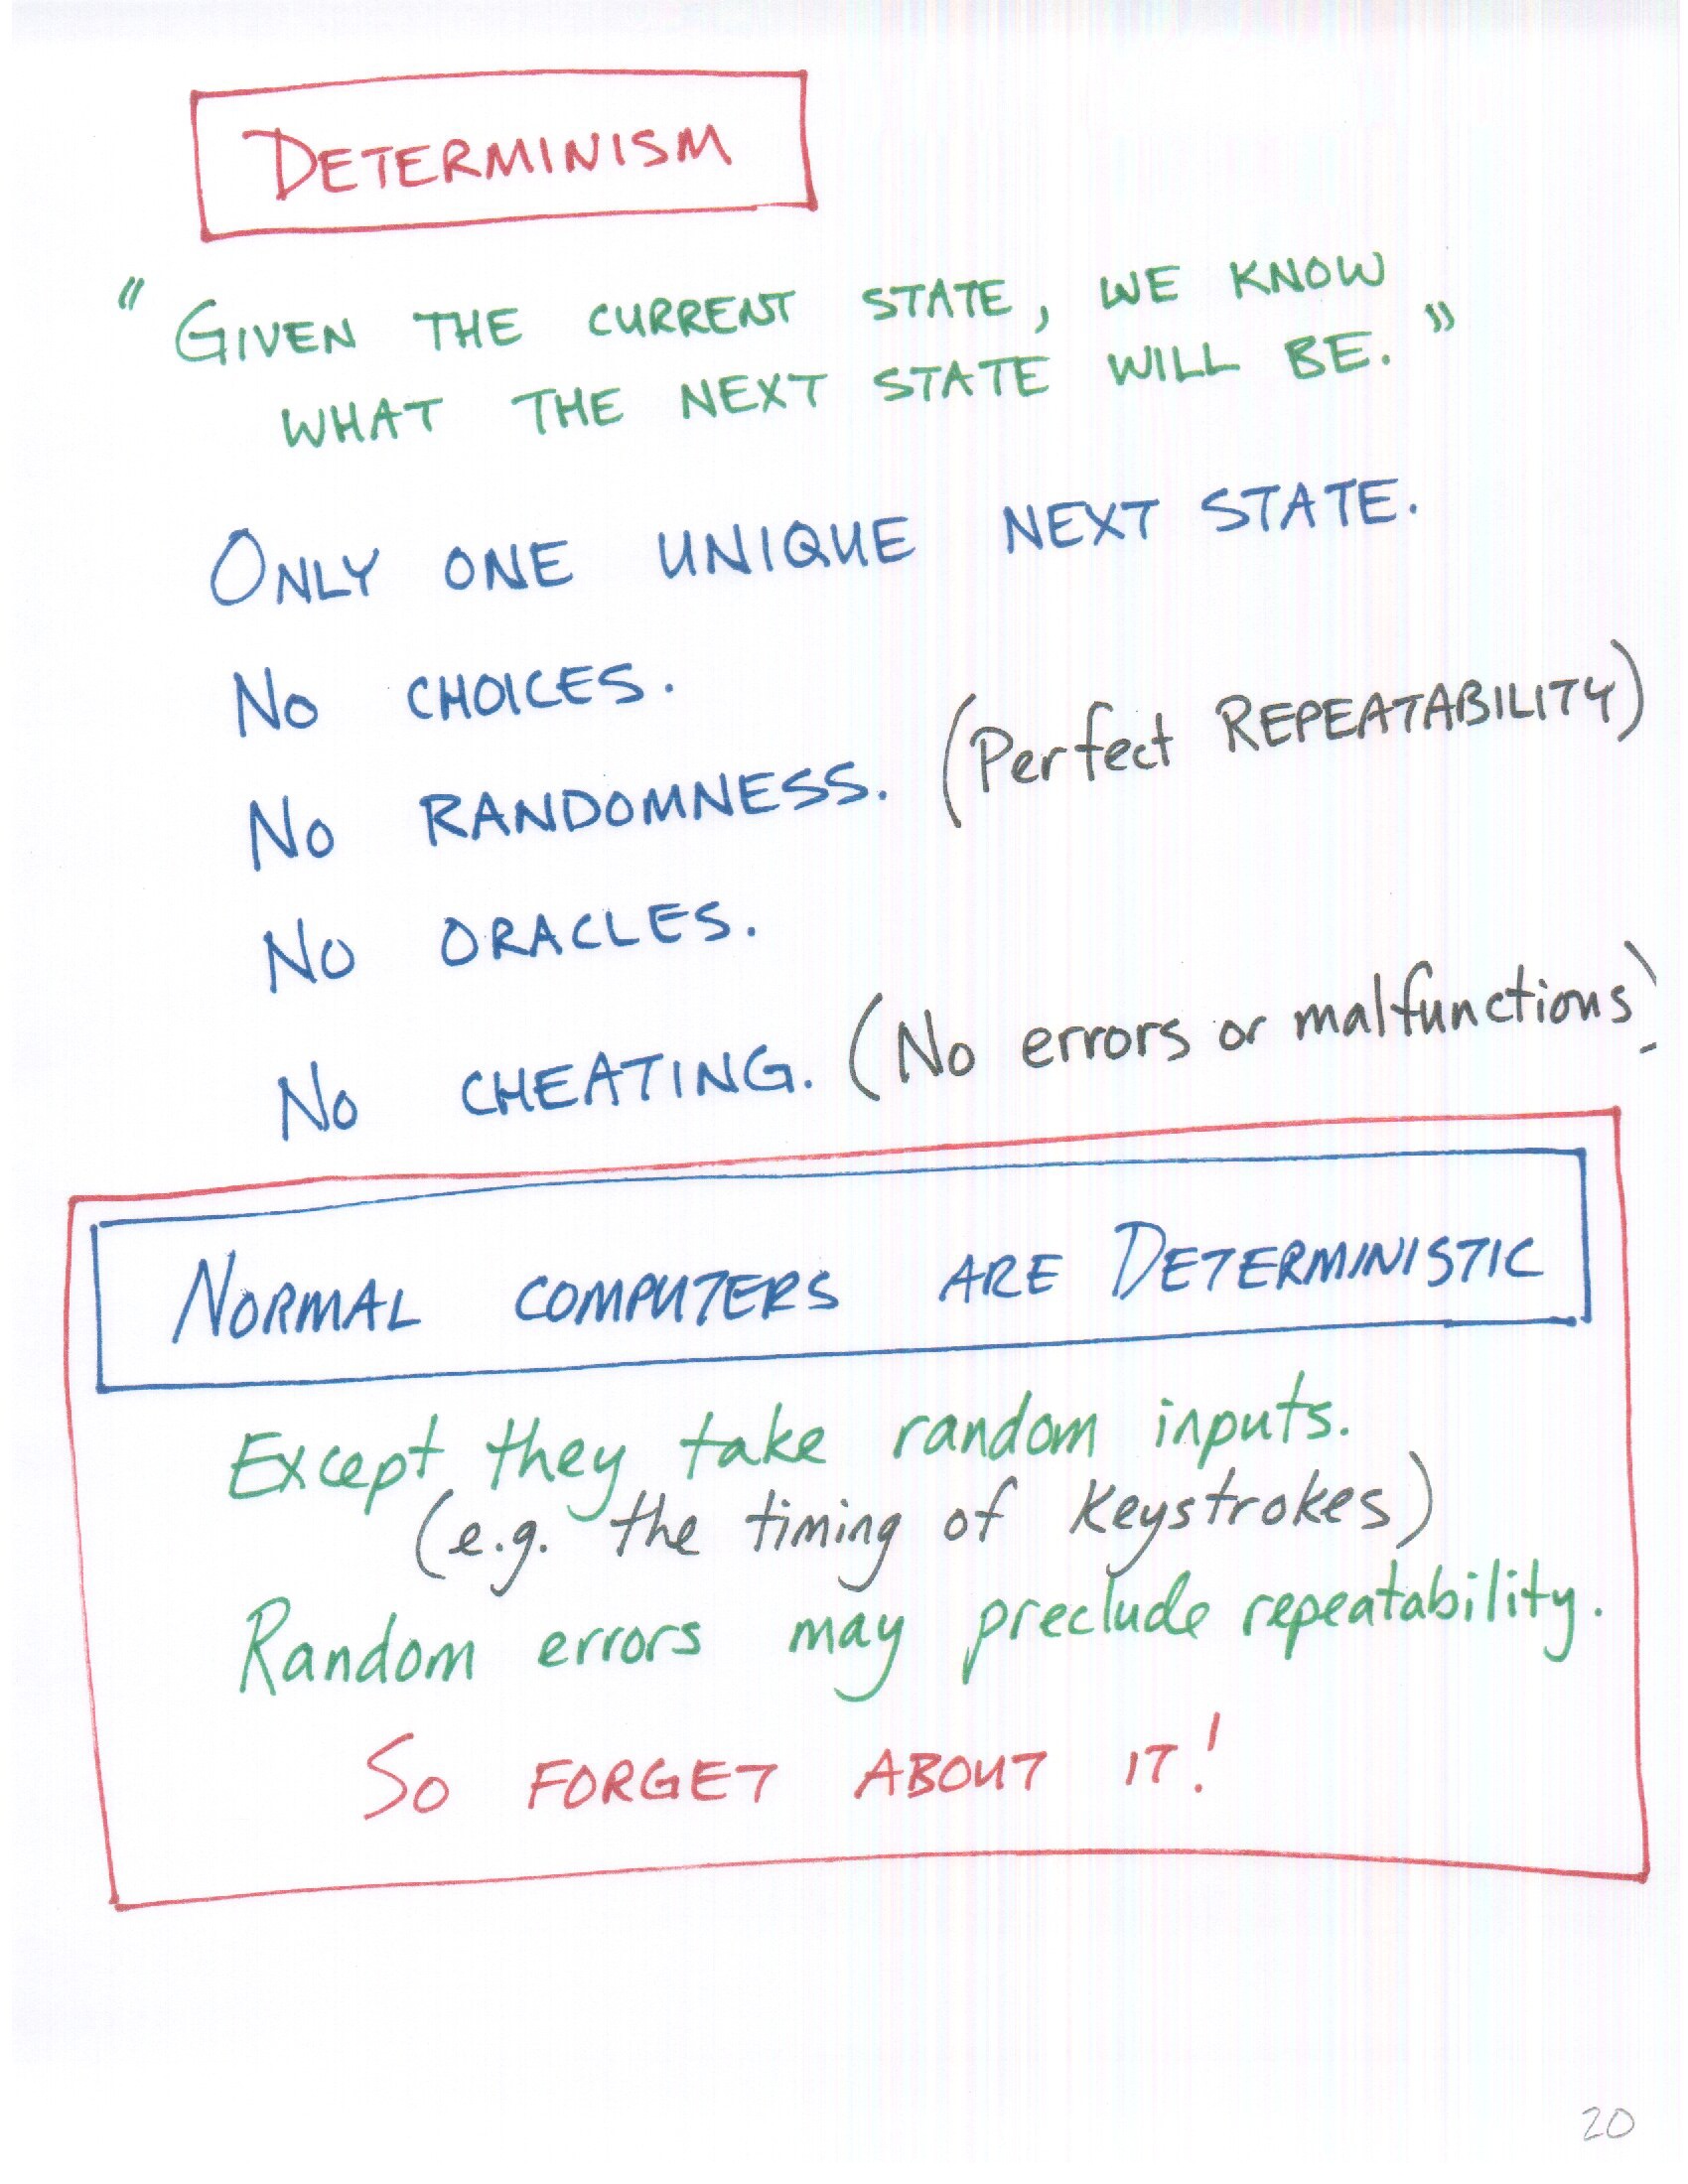 DETERMINISM
"GIVEN THE CURRENT STATE, WE KNOW
WHAT THE NEXT STATE WILL BE."
ONLY ONE UNIQUE NEXT STATE.
NO CHOICES.
NO RANDOMNESS. (Perfect REPEATABILITY)
NO ORACLES.
NO CHEATING. (No errors or malfunctions)
NORMAL COMPUTERS ARE DETERMINISTIC
Except they take random inputs.
(e.g. the timing of keystrokes)
Random errors may preclude repeatability.
SO FORGET ABOUT IT!
20